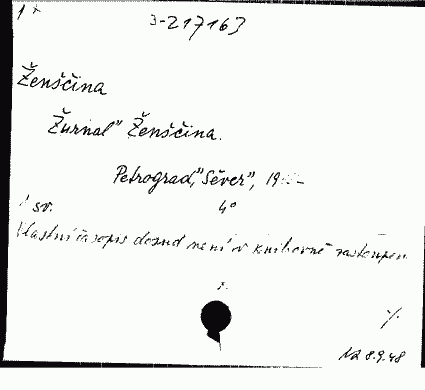 1 x
3-217163
Ženščina
Žurnal" Ženščina.
Petrograd, "Sěver", 19
1 sv. 4°
Vlastní časopis dosud není v knihovně zastoupen.
%
8.9.48